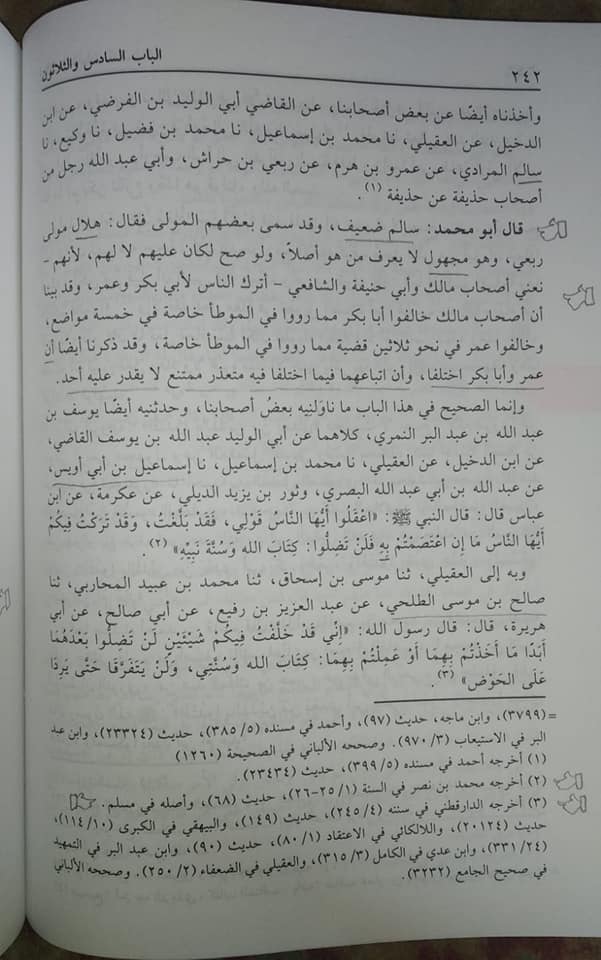 ٢٤٢
الباب السادس والثلاثون
وأخذناه أيضًا عن بعض أصحابنا، عن القاضي أبي الوليد بن الفرضي، عن ابن
الدخيل، عن العقيلي، نا محمد بن إسماعيل، نا محمد بن فضيل، نا وكيع، نا
سالم المرادي، عن عمرو بن هرم، عن ربعي بن حراش، وأبي عبد الله رجل من
أصحاب حذيفة عن حذيفة (١).
قال أبو محمد: سالم ضعيف، وقد سمى بعضهم المولى فقال: هلال مولى
ربعي، وهو مجهول لا يعرف من هو أصلاً، ولو صح لكان عليهم لا لهم، لأنهم -
نعني أصحاب مالك وأبي حنيفة والشافعي - أترك الناس لأبي بكر وعمر، وقد بينا
أن أصحاب مالك خالفوا أبا بكر مما رووا في الموطأ خاصة في خمسة مواضع،
وخالفوا عمر في نحو ثلاثين قضية مما رووا في الموطأ خاصة، وقد ذكرنا أيضًا أن
عمر وأبا بكر اختلفا، وأن اتباعهما فيما اختلفا فيه متعذر ممتنع لا يقدر عليه أحد.
وإنما الصحيح في هذا الباب ما ناوَلنِيه بعضُ أصحابنا، وحدثنيه أيضًا يوسف بن
عبد الله بن عبد البر النمري، كلاهما عن أبي الوليد عبد الله بن يوسف القاضي،
عن ابن الدخيل، عن العقيلي، نا محمد بن إسماعيل، نا إسماعيل بن أبي أويس،
عن عبد الله بن أبي عبد الله البصري، وثور بن يزيد الديلي، عن عكرمة، عن ابن
عباس قال: قال النبي ﷺ: «اعْقَلُوا أَيُّهَا النَّاسُ قَوْلِي، فَقَدْ بَلَّغْتُ، وَقَدْ تَرَكْتُ فِيكُمْ
أَيُّهَا النَّاسُ مَا إِن اعْتَصَمْتُمْ بِهِ فَلَنْ تَضِلُّوا: كِتَابَ الله وَسُنَّةَ نَبِيِّهِ» (٢).
وبه إلى العقيلي، ثنا موسى بن إسحاق، ثنا محمد بن عبيد المحاربي، ثنا
صالح بن موسى الطلحي، عن عبد العزيز بن رفيع، عن أبي صالح، عن أبي
هريرة، قال: قال رسول الله: «إِنِّي قَدْ خَلَّفْتُ فِيكُمْ شَيْئَيْنِ لَنْ تَضِلُّوا بَعْدَهُمَا
أَبَدًا مَا أَخَذْتُمْ بِهِمَا أَوْ عَمِلْتُمْ بِهِمَا: كِتَابَ الله وَسُنَّتِي، وَلَنْ يَتَفَرَّقَا حَتَّى يَرِدَا
عَلَى الحَوْضِ» (٣).
= (٣٧٩٩)، وابن ماجه، حديث (٩٧)، وأحمد في مسنده (٥/ ٣٨٥)، حديث (٢٣٣٢٤)، وابن عبد
البر في الاستيعاب (٣/ ٩٧٠). وصححه الألباني في الصحيحة (١٢٦٠)
(١) أخرجه أحمد في مسنده (٥/ ٣٩٩)، حديث (٢٣٤٣٤).
(٢) أخرجه محمد بن نصر في السنة (١/ ٢٥-٢٦)، حديث (٦٨)، وأصله في مسلم.
(٣) أخرجه الدارقطني في سننه (٤/ ٢٤٥)، حديث (١٤٩)، والبيهقي في الكبرى (١٠/ ١١٤)،
حديث (٢٠١٢٤)، واللالكائي في الاعتقاد (١/ ٨٠)، حديث (٩٠)، وابن عبد البر في التمهيد
(٢٤/ ٣٣١)، وابن عدي في الكامل (٣/ ٣١٥)، والعقيلي في الضعفاء (٢/ ٢٥٠). وصححه الألباني
في صحيح الجامع (٣٢٣٢).